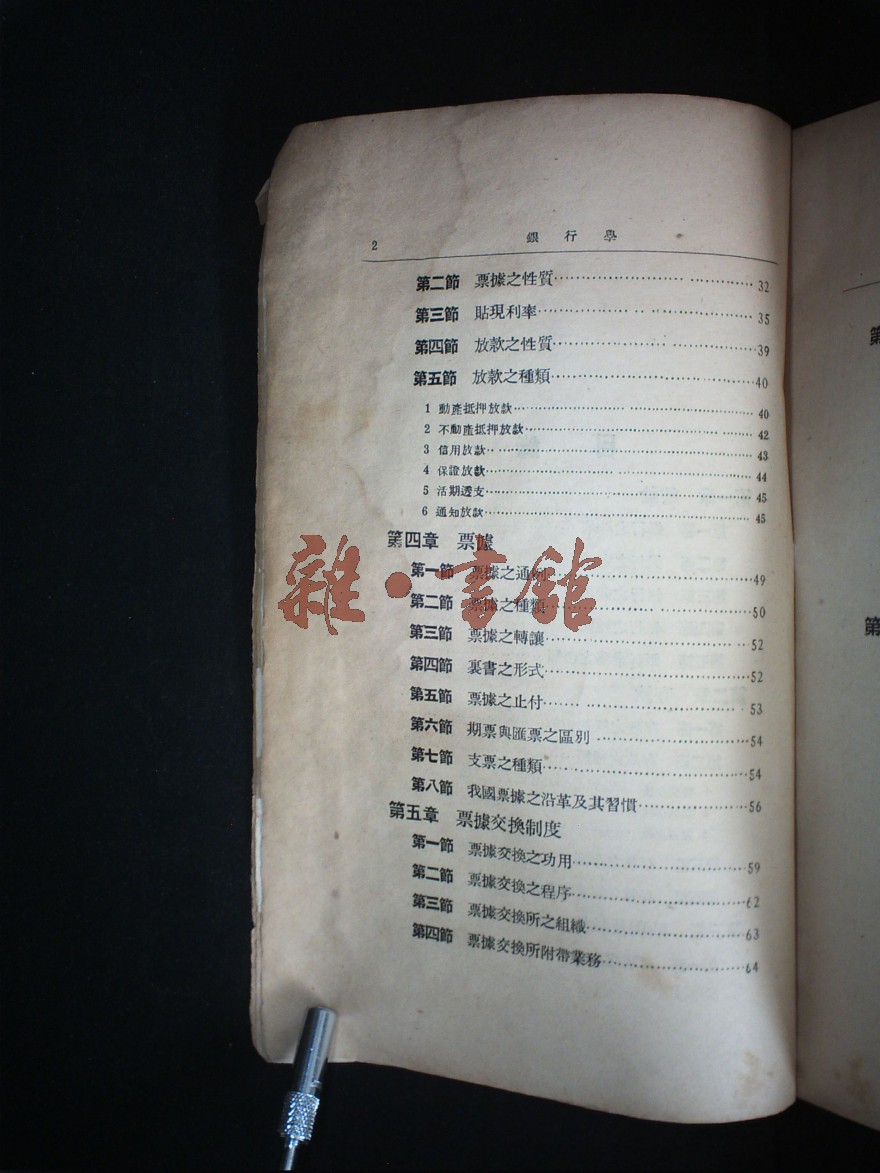 2
銀行學
第二節 票據之性質 32
第三節 貼現利率 35
第四節 放款之性質 39
第五節 放款之種類 40
1 動產抵押放款 40
2 不動產抵押放款 42
3 信用放款 43
4 保證放款 44
5 活期透支 45
6 通知放款 45
第四章 票據
第一節 票據之通例 49
第二節 票據之種類 50
第三節 票據之轉讓 52
第四節 裏書之形式 52
第五節 票據之止付 53
第六節 期票與匯票之區別 54
第七節 支票之種類 54
第八節 我國票據之沿革及其習慣 56
第五章 票據交換制度
第一節 票據交換之功用 59
第二節 票據交換之程序 62
第三節 票據交換所之組織 63
第四節 票據交換所附帶業務 64
雜·書館
第
第